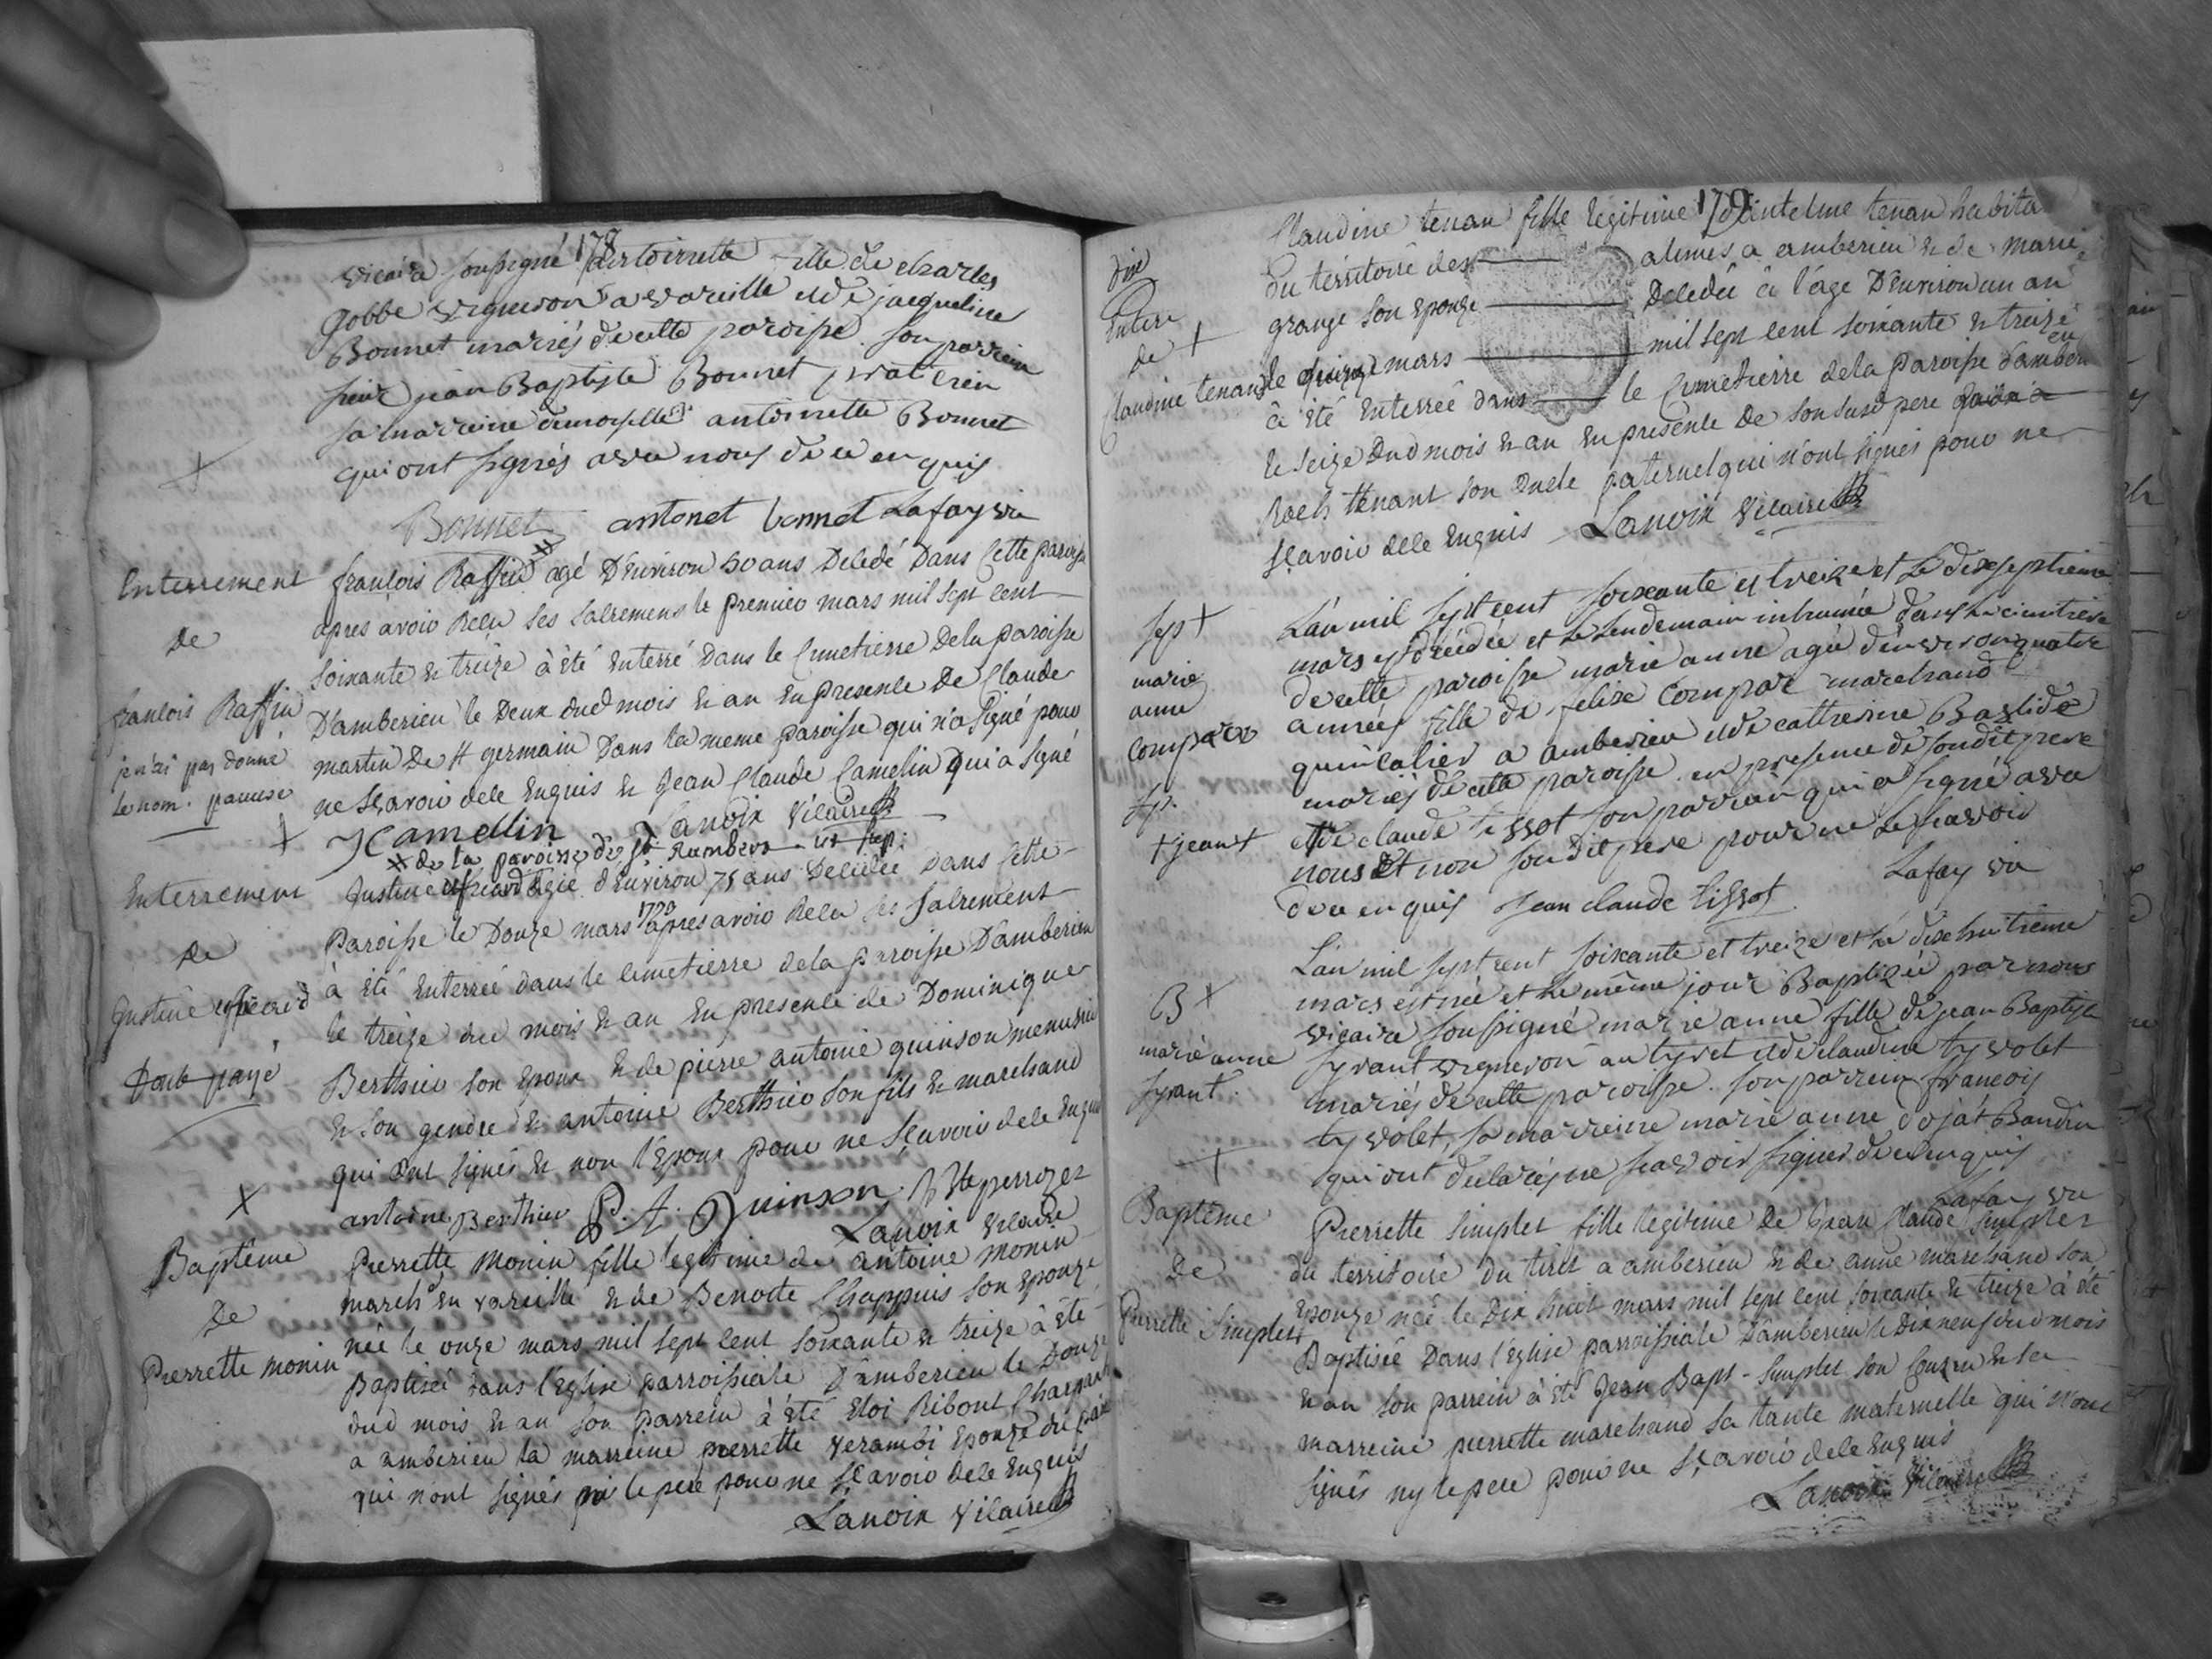 178
vicaire soussigné antoinette fille de charles
gobbe vigneron a vareille et de jacqueline
Bonnet mariés de cette paroisse. son parrein
sieur jean Baptiste Bonnet praticien
sa marreine demoiselle antoinette Bonnet
qui ont signés avec nous de ce enquis
Bonnet antonet bonnet Lafay vic
Enterrement
de
francois Raffin
je n'ai pas donné
le nom. pauvre
francois Raffin agé D'Environ 50 ans Decedé Dans Cette paroisse
apres avoir Recu ses sacremens le premier mars mil sept cent
soixante & treize à été Enterré Dans le Cimetierre De la paroisse
D'amberieu le Deux dud mois & an En presence De Claude
martin De st germain Dans la meme paroisse qui n'a signé pour
ne scavoir de ce Enquis & Jean Claude Camelin qui a signé
JCamellin Lanoix vicaire
de la paroisse de st Rambert
Enterrement
de
justine
tout payé
justine agée d'Environ 75 ans Decedée Dans Cette
Paroisse le Douze mars apres avoir Recu ses sacrement
à été Enterrée dans le cimetierre de la paroisse D'amberieu
le treize dud mois & an En presence de Dominique
Berthier son Epoux & de pierre antoine quinson menusier
& son gendre & antoine Berthier son fils & marchand
qui ont signés & non l'Epoux pour ne scavoir de ce Enquis
antoine Berthier P. A. Quinson
Lanoix vicaire
Baptême
De
Pierrette monin
Pierrette Monin fille legitime de antoine monin
march en vareille & de Benoite Chappuis son Epouze
née le onze mars mil sept cent soixante & treize à été
Baptisée dans l'Eglise parroissiale D'amberieu le Douze
dud mois & an son parrein à été Eloi Ribout
a amberieu la marreine pierrette Epouze du
qui n'ont signés ni le pere pour ne scavoir de ce Enquis
Lanoix vicaire
179
Enterr
de
Claudine tenan
Claudine tenan fille legitime D'antelme tenan habita
du territoire des alimes a amberieu & de marie
grange son epouze Decedée à l'âge D'Environ un an
le quinze mars mil sept cent soixante & treize
à été Enterrée dans le Cimetierre de la paroisse d'amberieu
le seize dud mois & an En presence De son susd pere
Roch thenant son oncle paternel qui n'ont signés pour ne
scavoir de ce Enquis Lanoix vicaire
sep
marie
anne
compare
L'an mil sept cent soixante et treize et le dix septieme
mars est décédée et le lendemain inhumée dans le cimetiere
de cette paroisse marie anne agée d'environ quatre
années fille de felix Compare marchand
quinCalier a amberieu et de catherine Bastide
mariés de cette paroisse. en presence de son dit pere
et de claude tissot son parrain qui a signé avec
nous et non son dit pere pour ne le scavoir
de ce enquis Jean claude tissot Lafay vic
B
marie anne
syrant
L'an mil sept cent soixante et treize et le dix huitieme
mars est née et le même jour Baptizée par nous
vicaire soussigné marie anne fille de jean Baptiste
syrant vigneron au tyret et de claudine tyvolet
mariés de cette paroisse. son parrein francois
tyvolet, sa marreine marie anne dojat Baudin
qui ont declarés ne scavoir signer de ce enquis
Lafay vic
Baptême
De
Pierrette Simplet
Pierrette Simplet fille legitime De Jean Claude Simplet
du territoire du tiret a amberieu & de anne marchand son
Epouze née le Dix huit mars mil sept cent soixante & treize à été
Baptisée Dans l'Eglise parroissiale D'amberieu le Dix neuf dud mois
& an son parrein à été Jean Bapt - Simplet son Cousin & la
marreine pierrette marchand sa tante maternelle qui n'ont
signés ny le pere pour ne scavoir de ce Enquis
Lanoix vicaire